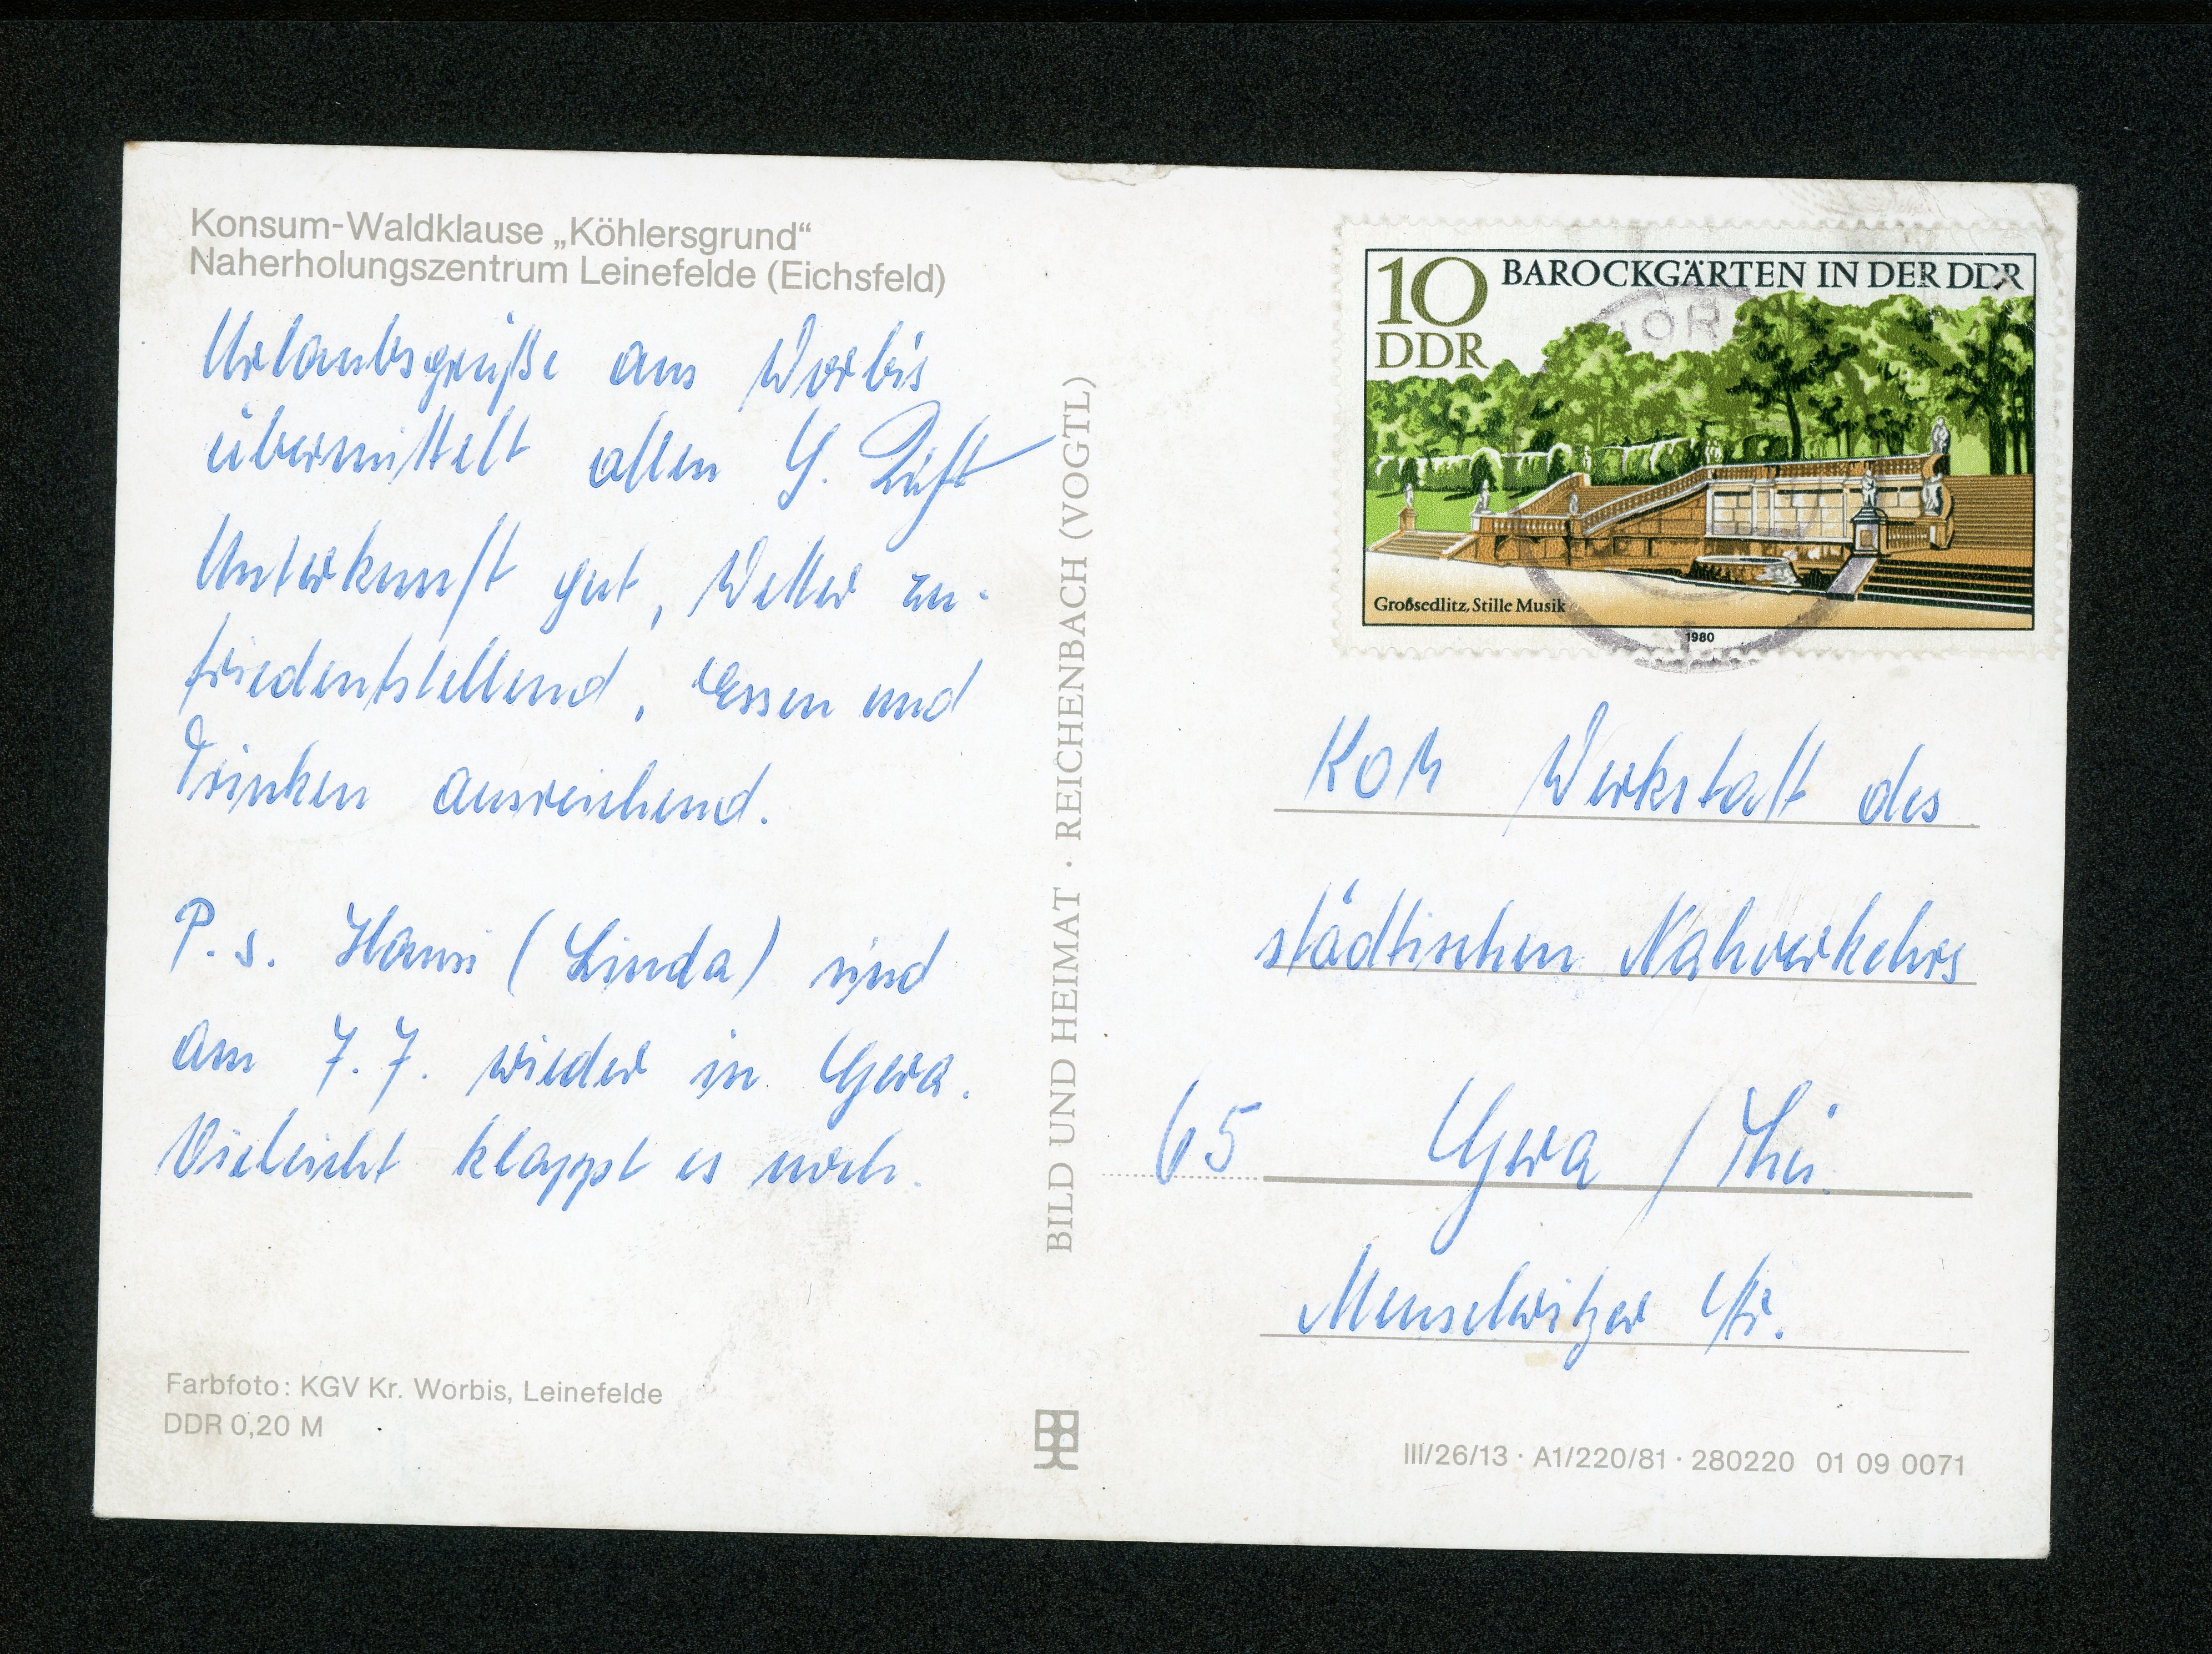 Konsum-Waldklause „Köhlersgrund“
Naherholungszentrum Leinefelde (Eichsfeld)
Urlaubsgrüße aus Worbis
übermittelt allen G.
Unterkunft gut, Wetter zu-
friedenstellend, Essen und
Trinken ausreichend.
P.s. Hansi (Linda) sind
am 7.7. wieder in Gera.
Vieleicht klappt es noch.
Farbfoto: KGV Kr. Worbis, Leinefelde
DDR 0,20 M
BILD UND HEIMAT · REICHENBACH (VOGTL)
10 BAROCKGÄRTEN IN DER DDR
DDR
Großsedlitz, Stille Musik
1980
KOM Werkstatt des
städtischen Nahverkehrs
65 Gera / Thü.
Menselwitzer Str.
III/26/13 · A1/220/81 · 280220 01 09 0071